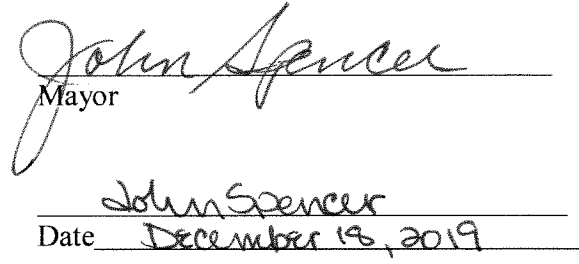 John Spencer
Mayor
John Spencer
Date December 18, 2019